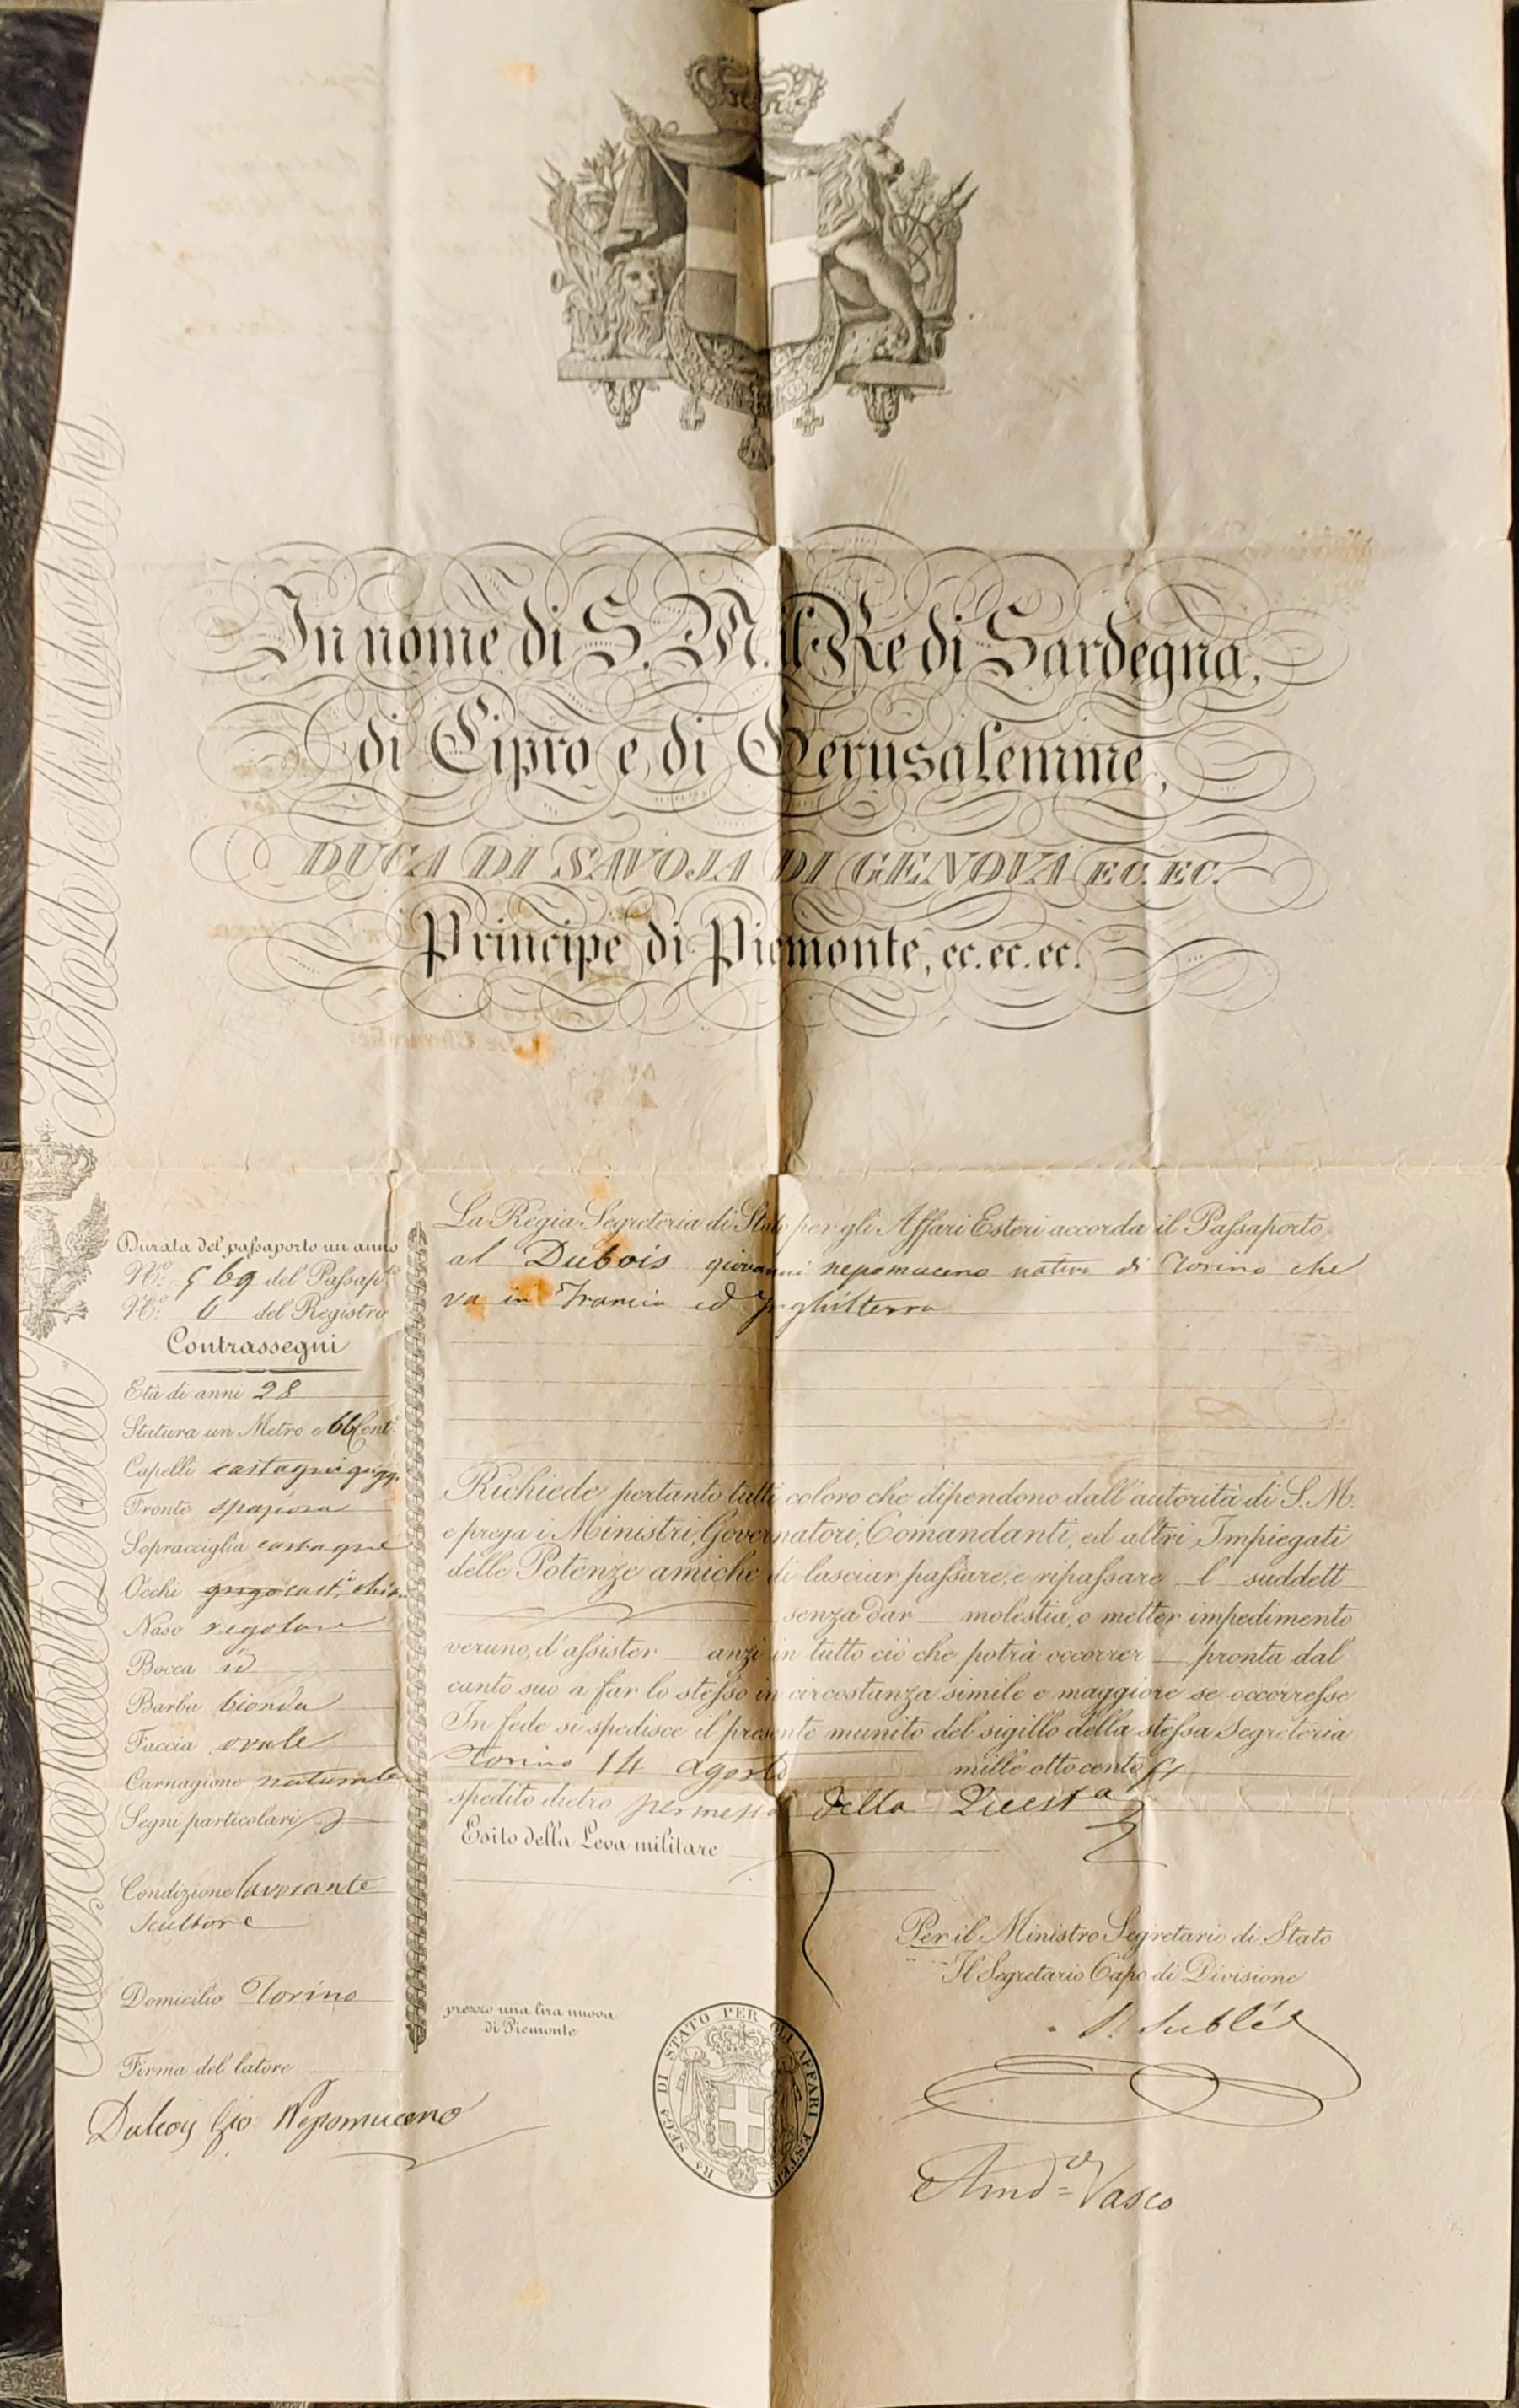 In nome di S. M. il Re di Sardegna,
di Cipro e di Gerusalemme,
DUCA DI SAVOJA DI GENOVA EC. EC.
Principe di Piemonte, ec. ec. ec.
Durata del passaporto un anno
N.º del Passap.to
N.º 6 del Registro
Contrassegni
Età di anni 28
Statura un Metro e 66 Cent.i
Capelli castagni
Fronte spaziosa
Sopracciglia castagne
Occhi cast.i
Naso regolare
Bocca id
Barba bionda
Faccia ovale
Carnagione naturale
Segni particolari
Condizione lavorante
scultore
Domicilio Torino
Firma del latore
Dubois Gio. Nepomuceno
La Regia Segreteria di Stato per gli Affari Esteri accorda il Passaporto
al Dubois giovanni nepomuceno nativo di Torino che
va in Francia ed Inghilterra
Richiede pertanto tutti coloro che dipendono dall'autorità di S. M.
e prega i Ministri, Governatori, Comandanti, ed altri Impiegati
delle Potenze amiche di lasciar passare, e ripassare l suddett
senza dar molestia, o metter impedimento
veruno, d'assister anzi in tutto ciò che potrà occorrer pronta dal
canto suo a far lo stesso in circostanza simile e maggiore se occorresse
In fede si spedisce il presente munito del sigillo della stessa Segreteria
Torino 14 agosto mille ottocento
spedito dietro permesso della Questa
Esito della Leva militare
prezzo una lira nuova
di Piemonte
Per il Ministro Segretario di Stato
Il Segretario Capo di Divisione
Vasco
R.A SEG.A DI STATO PER GLI AFFARI ESTERI